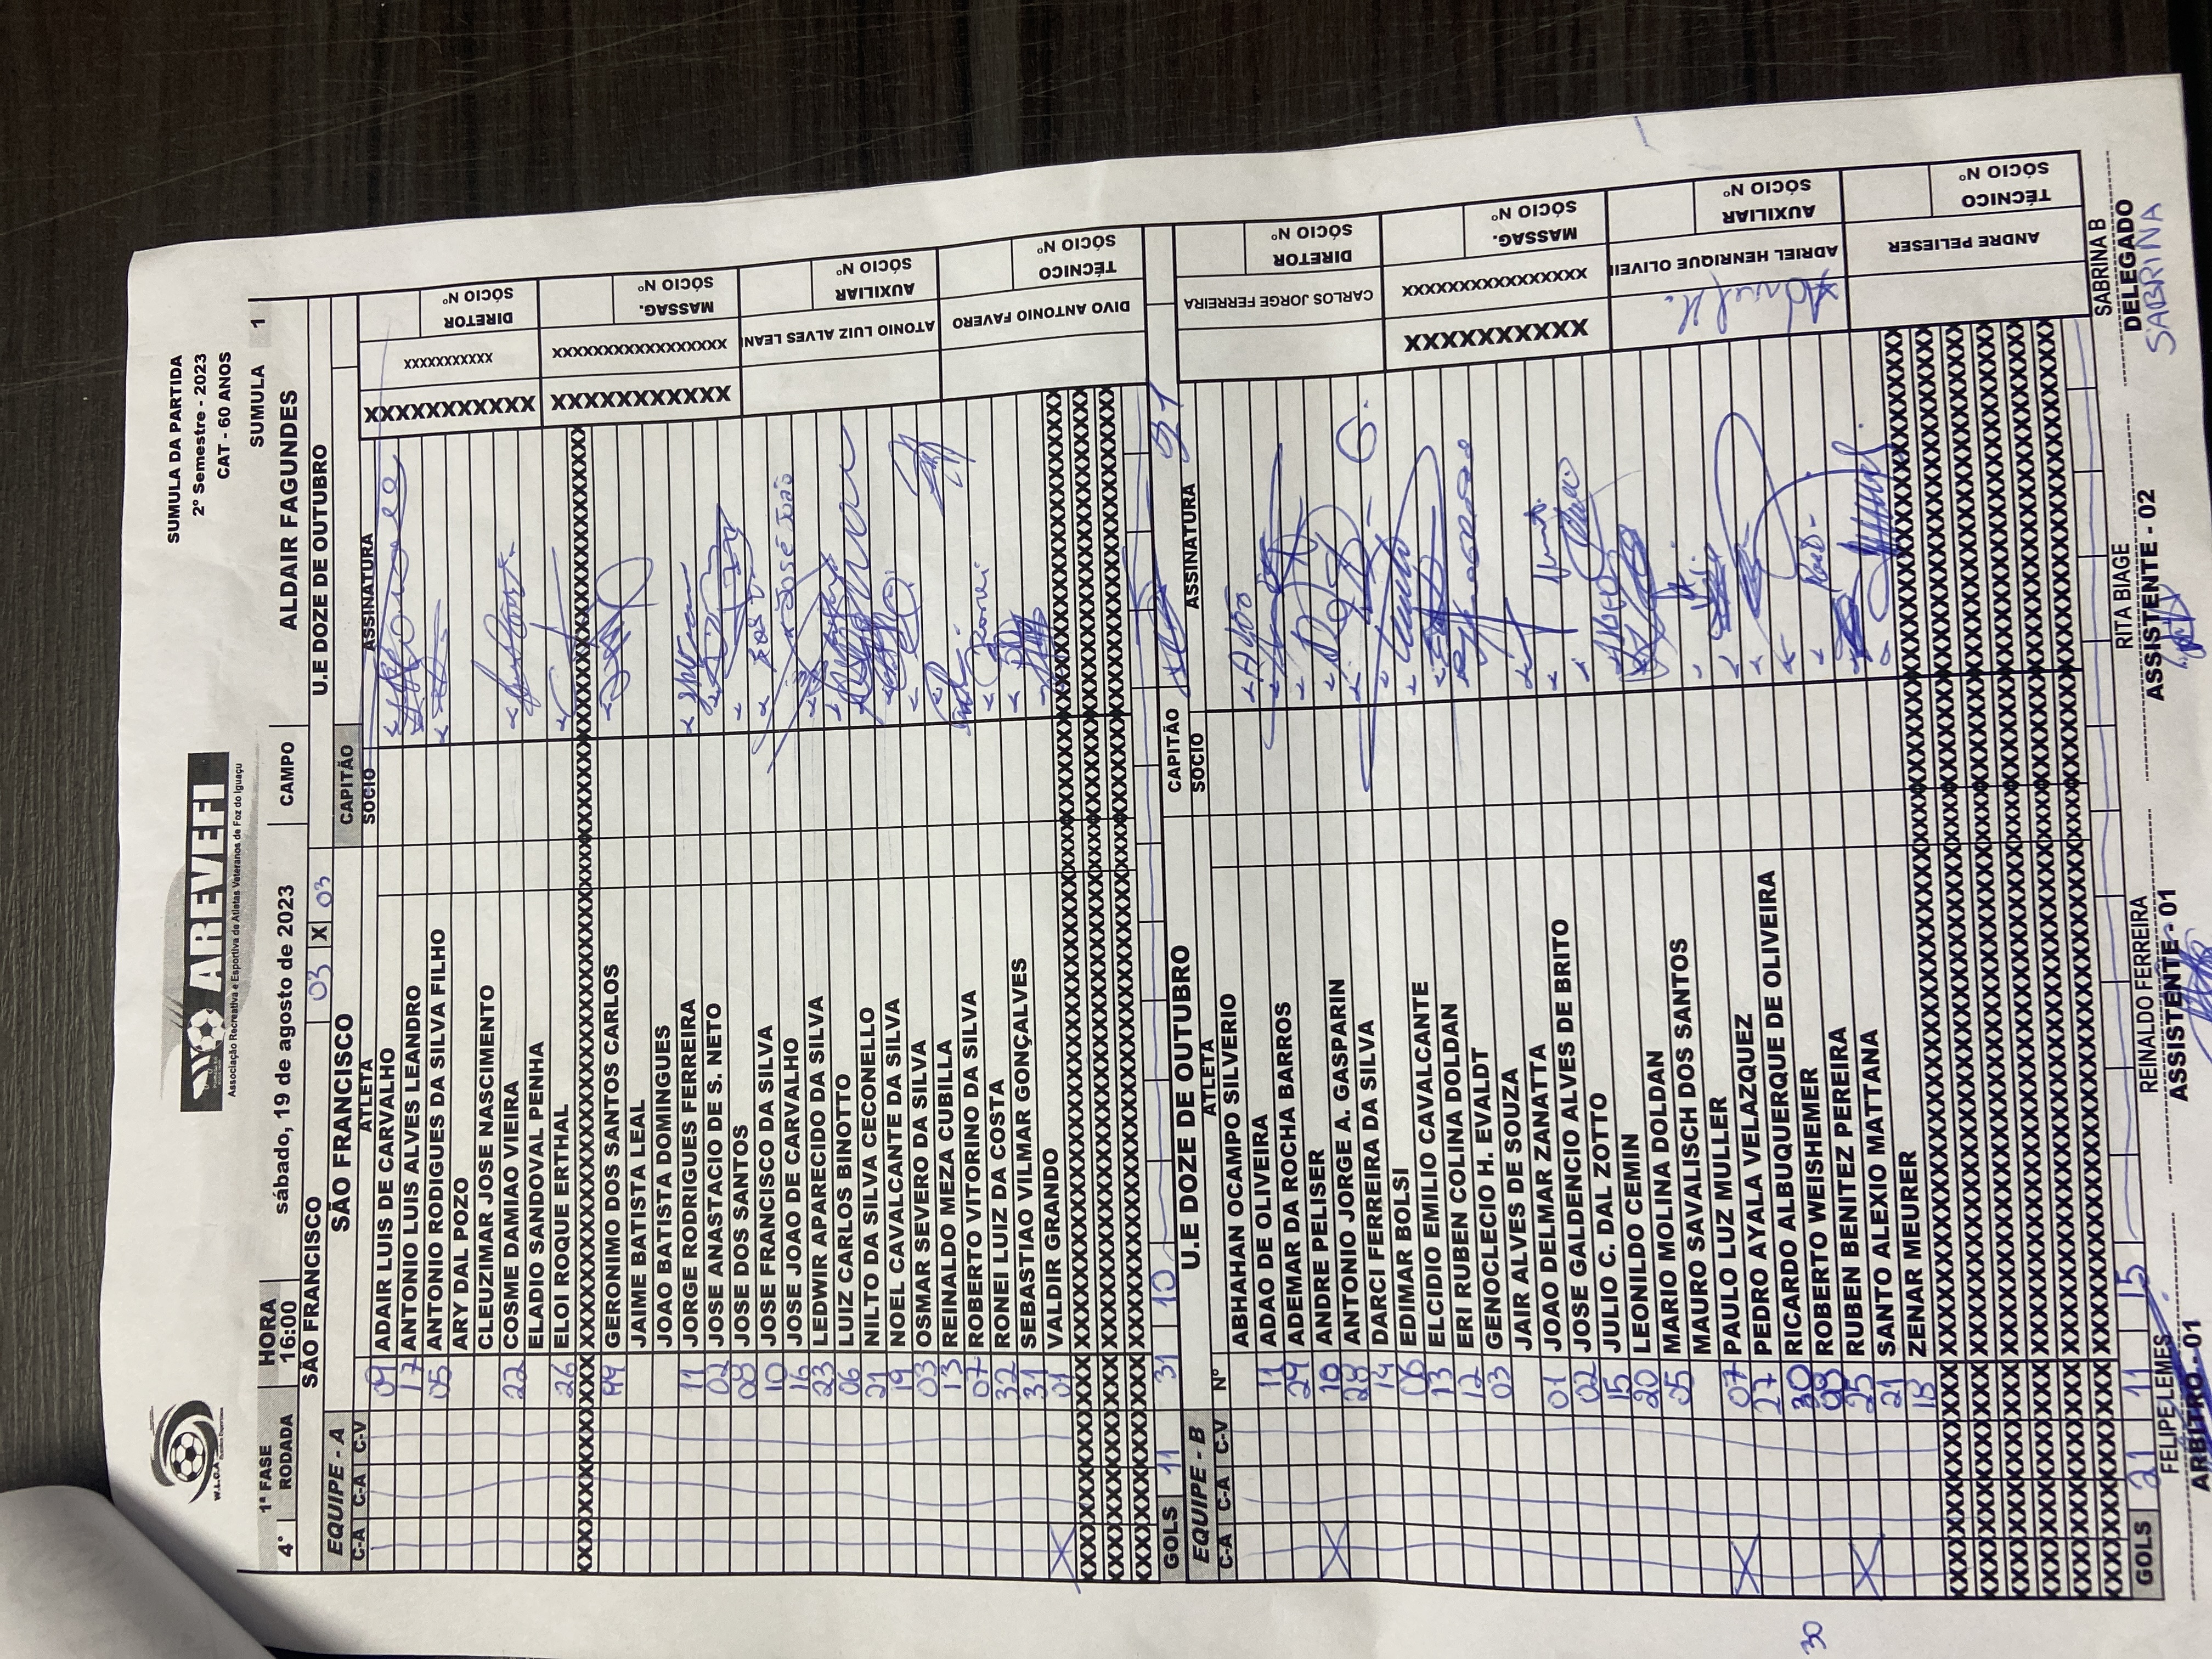 W.L.O.A
AREVEFI
Associação Recreativa e Esportiva de Atletas Veteranos de Foz do Iguaçu
SUMULA DA PARTIDA
2º Semestre - 2023
CAT - 60 ANOS
1ª FASE HORA SUMULA 1
4ª RODADA 16:00 sábado, 19 de agosto de 2023 CAMPO ALDAIR FAGUNDES
SÃO FRANCISCO 03 X 03 U.E DOZE DE OUTUBRO
EQUIPE - A SÃO FRANCISCO CAPITÃO
C-A C-A C-V ATLETA SOCIO ASSINATURA
09 ADAIR LUIS DE CARVALHO
17 ANTONIO LUIS ALVES LEANDRO
05 ANTONIO RODIGUES DA SILVA FILHO
ARY DAL POZO
CLEUZIMAR JOSE NASCIMENTO
22 COSME DAMIAO VIEIRA
ELADIO SANDOVAL PENHA
26 ELOI ROQUE ERTHAL
XXXXXXXXXXXXXXXXXXXXXXXX
99 GERONIMO DOS SANTOS CARLOS
JAIME BATISTA LEAL
JOAO BATISTA DOMINGUES
11 JORGE RODRIGUES FERREIRA
02 JOSE ANASTACIO DE S. NETO
08 JOSE DOS SANTOS
10 JOSE FRANCISCO DA SILVA
16 JOSE JOAO DE CARVALHO José João
23 LEDWIR APARECIDO DA SILVA
06 LUIZ CARLOS BINOTTO
21 NILTO DA SILVA CECONELLO
19 NOEL CAVALCANTE DA SILVA
03 OSMAR SEVERO DA SILVA
13 REINALDO MEZA CUBILLA
07 ROBERTO VITORINO DA SILVA
32 RONEI LUIZ DA COSTA Ronei
31 SEBASTIAO VILMAR GONÇALVES
01 VALDIR GRANDO
X
XXXXXXXXXXX XXXXXXXXXXX DIRETOR SÓCIO Nº
XXXXXXXXXXX XXXXXXXXXXXXXXXXX MASSAG. SÓCIO Nº
ATONIO LUIZ ALVES LEAN AUXILIAR SÓCIO Nº
DIVO ANTONIO FAVERO TÉCNICO SÓCIO Nº
GOLS 11 31 10
EQUIPE - B U.E DOZE DE OUTUBRO CAPITÃO
C-A C-A C-V Nº ATLETA SOCIO ASSINATURA
ABHAHAN OCAMPO SILVERIO
11 ADAO DE OLIVEIRA
29 ADEMAR DA ROCHA BARROS
19 ANDRE PELISER
28 ANTONIO JORGE A. GASPARIN
14 DARCI FERREIRA DA SILVA
06 EDIMAR BOLSI
13 ELCIDIO EMILIO CAVALCANTE
12 ERI RUBEN COLINA DOLDAN
03 GENOCLECIO H. EVALDT
JAIR ALVES DE SOUZA
01 JOAO DELMAR ZANATTA
02 JOSE GALDENCIO ALVES DE BRITO
15 JULIO C. DAL ZOTTO
20 LEONILDO CEMIN
05 MARIO MOLINA DOLDAN
MAURO SAVALISCH DOS SANTOS
07 PAULO LUZ MULLER
27 PEDRO AYALA VELAZQUEZ
30 RICARDO ALBUQUERQUE DE OLIVEIRA
ROBERTO WEISHEMER
25 RUBEN BENITEZ PEREIRA
21 SANTO ALEXIO MATTANA
ZENAR MEURER
30
CARLOS JORGE FERREIRA DIRETOR SÓCIO Nº
XXXXXXXXXXX XXXXXXXXXXXXXXX MASSAG. SÓCIO Nº
ADRIEL HENRIQUE OLIVEI AUXILIAR SÓCIO Nº
ANDRE PELIESER TÉCNICO SÓCIO Nº
GOLS 21 11 15
FELIPE LEMES REINALDO FERREIRA RITA BIAGE SABRINA B
ARBITRO - 01 ASSISTENTE - 01 ASSISTENTE - 02 DELEGADO
SABRINA